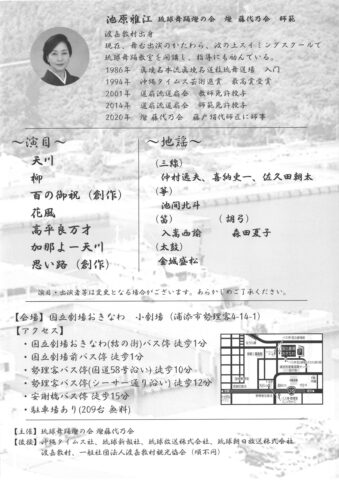 池原雅江 琉球舞踊燈の会 燈 藤代乃会 師範
渡嘉敷村出身
現在、舞台出演のかたわら、波の上スイミングスクールて
琉球舞踊教室を開講し、指導にも励んている。
1986年 真境名本流真境名道松舞道場 入門
1994年 沖縄タイムス芸術選賞 最高賞受賞
2001年 道扇流道扇会 教師免許授与
2014年 道扇流道扇会 師範免許授与
2020年 燈 藤代乃会 藤戸絹代師匠に師事
～演目～
天川
柳
百の御祝（創作）
花風
高平良万才
加那よー天川
思い路（創作）
～地謡～
（三線）
仲村逸夫、喜納吏一、佐久田朝太
（箏）
池間北斗
（笛） （胡弓）
入嵩西諭 森田夏子
（太鼓）
金城盛松
演目・出演者等は変更となる場合がございます。あらかじめご了承ください。
【会場】国立劇場おきなわ 小劇場（浦添市勢理客4-14-1）
【アクセス】
・国立劇場おきなわ(結の街)バス停 徒歩1分
・国立劇場前バス停 徒歩1分
・勢理客バス停(国道58号沿い)徒歩10分
・勢理客バス停(シーサー通り沿い)徒歩12分
・安謝橋バス停 徒歩15分
・駐車場あり(209台 無料)
【主催】琉球舞踊燈の会 燈藤代乃会
【後援】沖縄タイムス社、琉球新報社、琉球放送株式会社、琉球朝日放送株式会社
渡嘉敷村、一般社団法人渡嘉敷村観光協会（順不同）